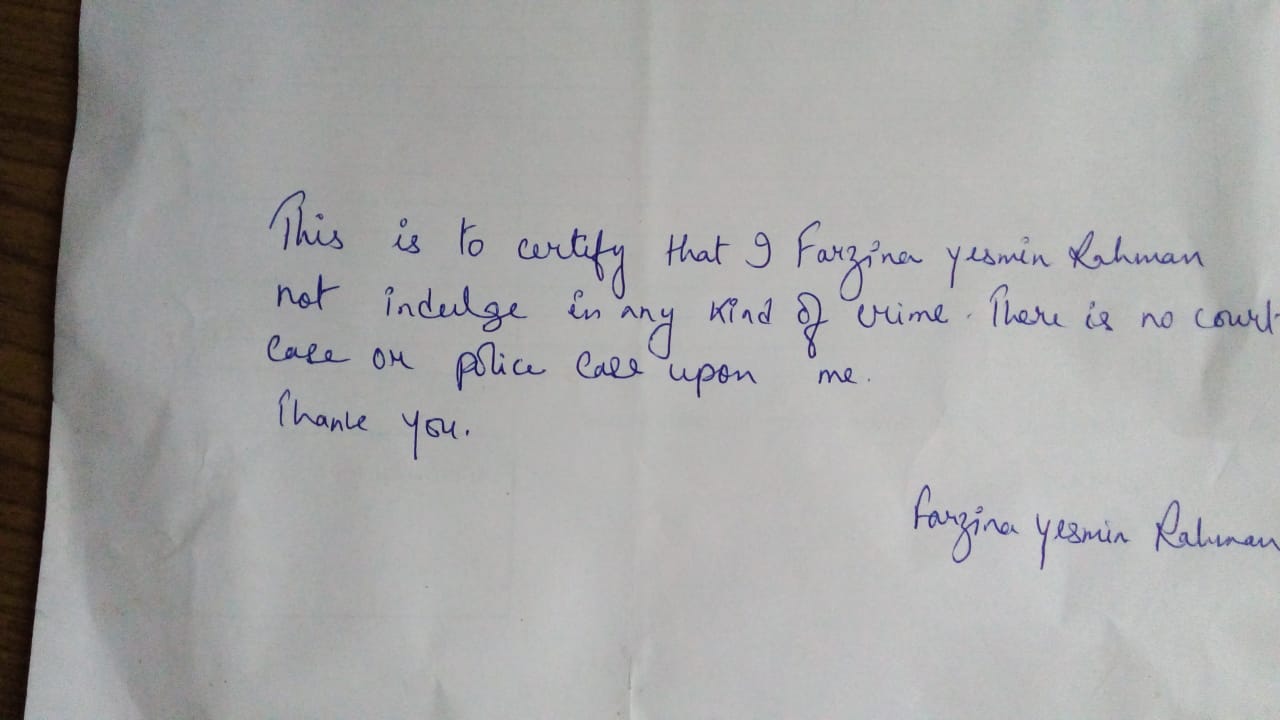 This is to certify that I Farzina yesmin Rahman
not indulge in any kind of crime. There is no court
case or police case upon me.
Thank you.
Farzina yesmin Rahman